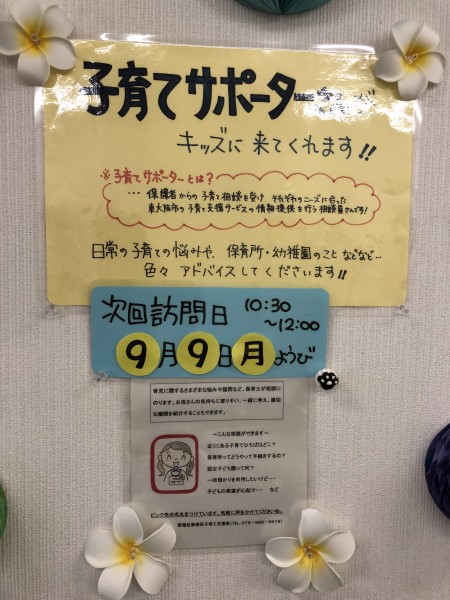 子育てサポーター
キッズに来てくれます!!
※子育てサポーターとは?
・・・保護者からの子育て相談を受け それぞれのニーズに合った
東大阪市の子育て支援サービスの情報提供を行う相談員さんです!
日常の子育ての悩みや、保育所・幼稚園のことなどなど…
色々アドバイスしてくださいます!!
次回訪問日 10:30
~12:00
9月9日月ようび
育児に関するさまざまな悩みや疑問など、保育士が相談に
のります。お母さんの気持ちに寄りそい、一緒に考え、適切
な機関を紹介することもできます。
~こんな相談ができます~
近くにある子育てひろばはどこ?
保育所ってどうやって手続きするの?
認定こども園って何?
一時預かりを利用したいけど・・・
子どもの発達が心配で・・・ など
ピンク色の名札をつけています。気軽に声をかけてくださいね。